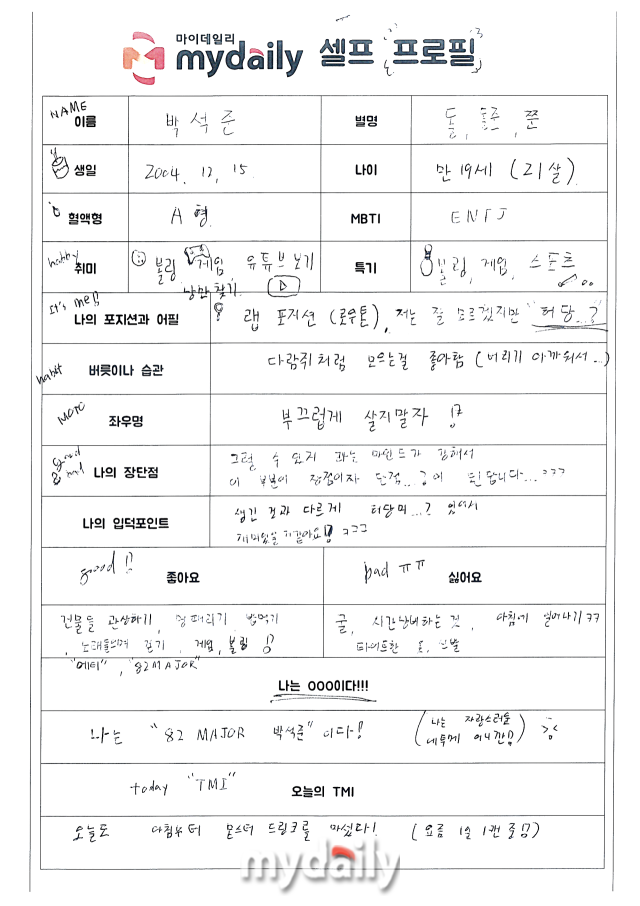 마이데일리
mydaily 셀프 프로필
NAME 이름 박석준 별명 돌, 돌준, 쭌
생일 2004. 12. 15. 나이 만 19세 (21살)
혈액형 A형 MBTI ENTJ
hobby 취미 볼링, 게임, 유튜브 보기 특기 볼링, 게임, 스포츠
낭만찾기
It's me!! 나의 포지션과 어필 랩 포지션 (로우톤), 저는 잘 모르겠지만 "허당...?
habit 버릇이나 습관 다람쥐처럼 모으는걸 좋아함 (버리기 아까워서...)
좌우명 부끄럽게 살지말자 !?
good 나의 장단점 그럴 수 있지 라는 마인드가 강해서
이 부분이 장점이자 단점...?이 된답니다...ㅋㅋㅋ
나의 입덕포인트 생긴 것과 다르게 허당미...? 있어서
ㅋㅋㅋ
good !! 좋아요 bad ㅠㅠ 싫어요
건물들 관상하기, 멍때리기, 밥먹기 굴, 시간낭비하는 것, 아침에 일어나기ㅋㅋ
노래들으며 걷기, 게임, 볼링 타이트한 옷, 신발
"에티", "82MAJOR"
나는 OOO이다!!!
나는 "82 MAJOR 박석준" 이다! (나는 자랑스러운
today "TMI" 오늘의 TMI
오늘도 아침부터 몬스터 드링크를 마셨다! (요즘 1일 1캔 중임)
mydaily